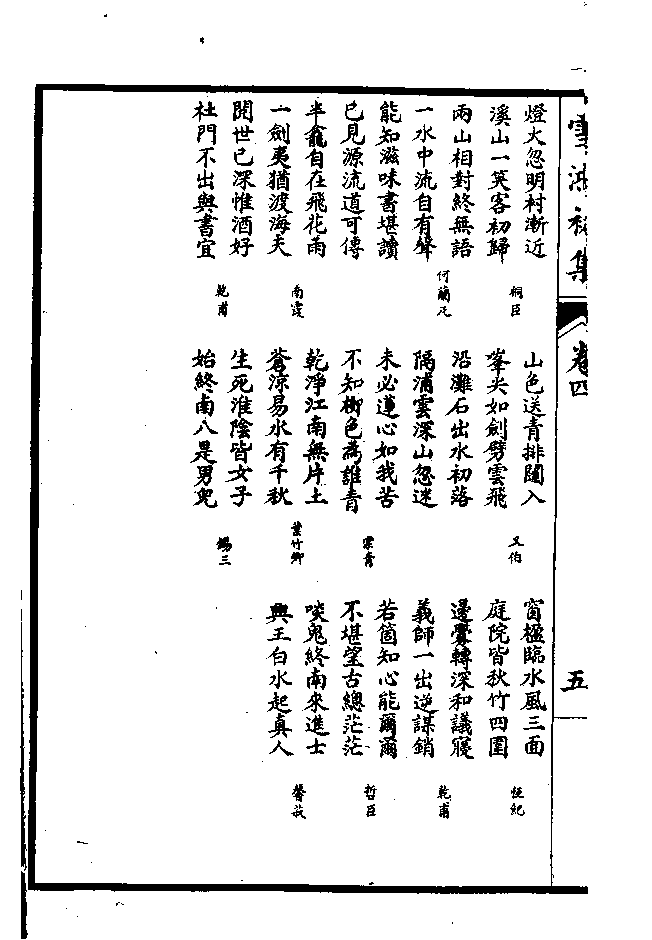 雪鴻初集
卷四
五
燈火忽明村漸近
溪山一笑客初歸
桐臣
兩山相對終無語
一水中流自有聲
何蘭
能知滋味書堪讀
已見源流道可傳
半龕自在飛花雨
一劍夷猶渡海天
南霞
閱世已深惟酒好
杜門不出與書宜
乾甫
山色送青排闥入
峯尖如劍劈雲飛
又伯
沿灘石出水初落
隔浦雲深山忽迷
未必蓮心如我苦
不知柳色為誰青
霖青
乾淨江南無片土
蒼涼易水有千秋
葉竹卿
生死淮陰皆女子
始終南八是男兒
錫三
窗楹臨水風三面
庭院皆秋竹四圍
恆紀
邊釁轉深和議寢
義師一出逆謀銷
乾甫
若箇知心能爾爾
不堪望古總茫茫
哲臣
啖鬼終南來進士
興王白水起真人
馨茲